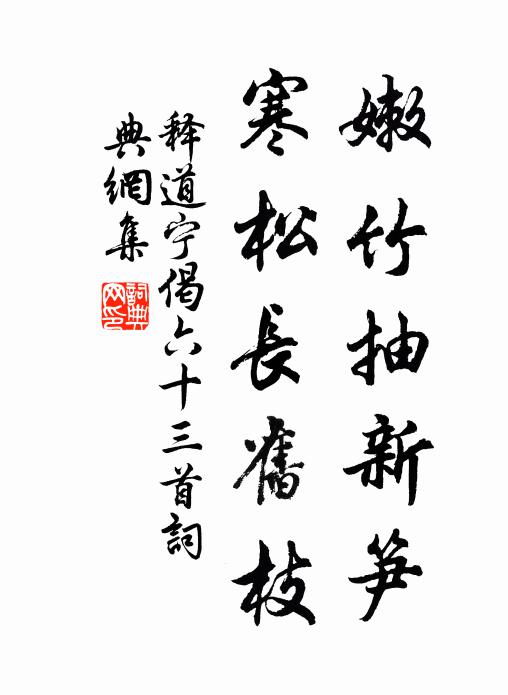 嫩竹抽新笋
寒松長舊枝
释道宁偈六十三首詞
典網集
詞典
网印